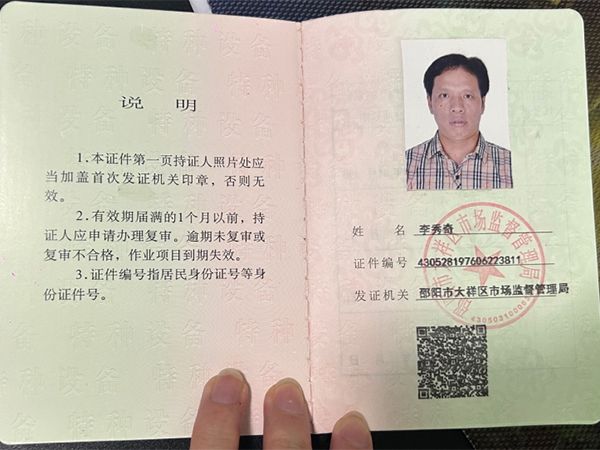 说 明
1.本证件第一页持证人照片处应
当加盖首次发证机关印章，否则无
效。
2.有效期届满的1个月以前，持
证人应申请办理复审。逾期未复审或
复审不合格，作业项目到期失效。
3.证件编号指居民身份证号等身
份证件号。
姓 名 李秀奇
证件编号 430528197606223811
发证机关 邵阳市大祥区市场监督管理局
邵阳市大祥区市场监督管理局